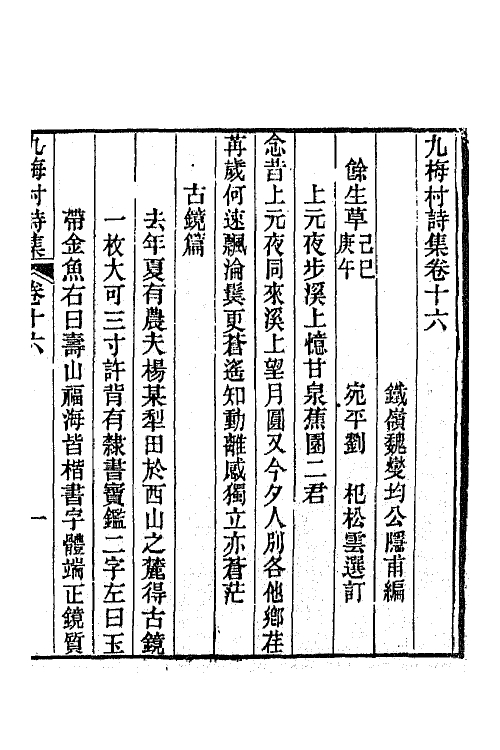 九梅村詩集卷十六
鐵嶺魏燮均公隱甫編
餘生草己巳庚午
宛平劉　杞松雲選訂
上元夜步溪上憶甘泉蕉園二君
念昔上元夜同來溪上望月圓又今夕人別各他鄉荏
苒歲何速飄淪鬢更蒼遙知動離感獨立亦蒼茫
古鏡篇
去年夏有農夫楊某犁田於西山之麓得古鏡
一枚大可三寸許背有隸書寶鑑二字左曰玉
帶金魚右曰壽山福海皆楷書字體端正鏡質
九梅村詩集　卷十六　一